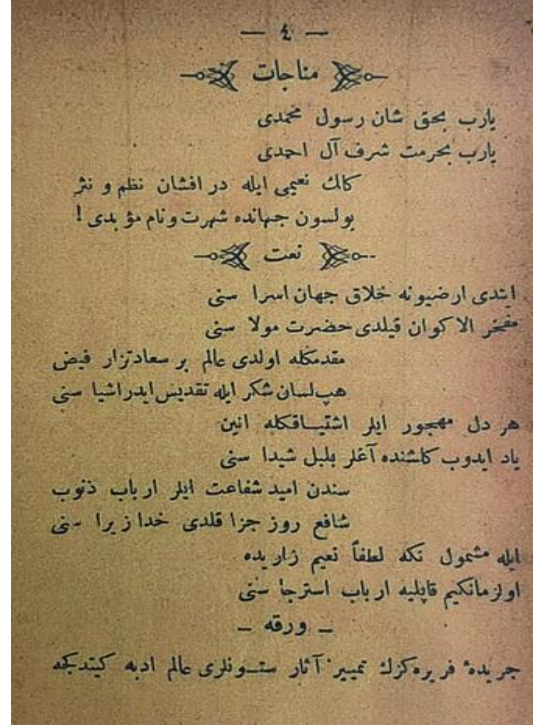 — ٤ —
مناجات
يارب بحق شان رسول محمدى
يارب بحرمت شرف آل احمدى
كلك نعيمى ايله در افشان نظم و نثر
بولسون جهانده شهرت ونام مؤبدى !
نعت
ايتدى ارضيونه خلاق جهان اسرا سنى
مفخر الاكوان قيلدى حضرت مولا سنى
مقدمكله اولدى عالم بر سعادتزار فيض
هپ لسان شكر ايله تقديس ايدر اشيا سنى
هر دل مهجور ايلر اشتياقكله انين
ياد ايدوب كلشنده آغلر بلبل شيدا سنى
سندن اميد شفاعت ايلر ارباب ذنوب
شافع روز جزا قلدى خدا زيرا سنى
ايله مشمول نكه لطفاً نعيم زاريده
اولزمانكيم قاپليه ارباب استرجا سنى
– ورقه –
جريدهٔ فريده كزك تمييز آثار ستونلرى عالم ادبه كيتدكجه